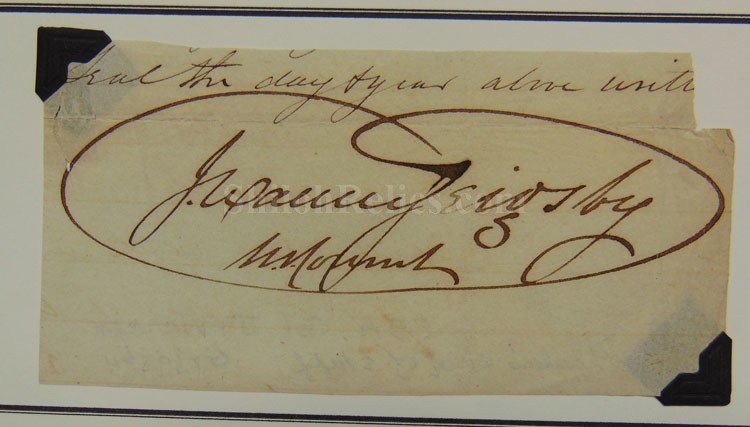 seal the day & year above writ
J. Warren Grigsby
U.S. Consul
ShilohRelics.com